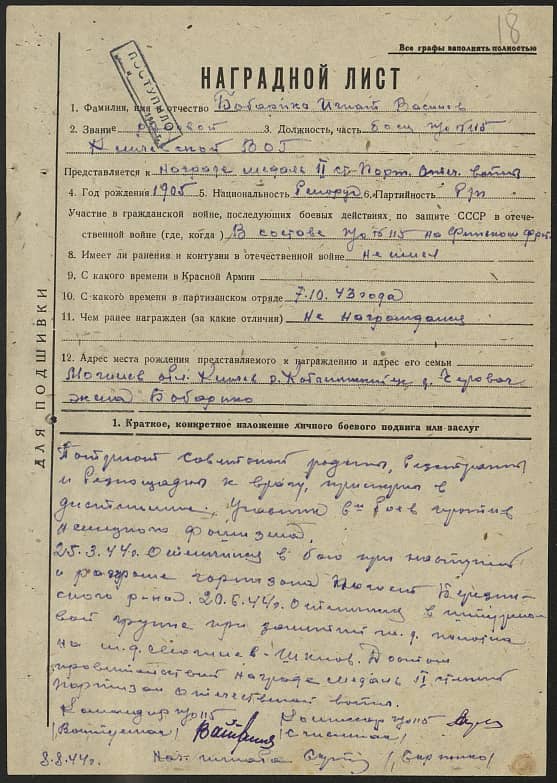 18
Все графы заполнять полностью
ПОСТУПИЛО
НАГРАДНОЙ ЛИСТ
1. Фамилия, имя и отчество Бобарико Игнат
2. Звание рядовой 3. Должность, часть боец п/о №115
Кличевской ВОГ
Представляется к награде медаль II ст. Парт. Отеч. войны
4. Год рождения 1905 5. Национальность Белорус 6. Партийность б/п
Участие в гражданской войне, последующих боевых действиях, по защите СССР в отече-
ственной войне (где, когда) В составе п/о №115 на
8. Имеет ли ранения и контузии в отечественной войне не имел
9. С какого времени в Красной Армии
10. С какого времени в партизанском отряде 7.10.43 года
11. Чем ранее награжден (за какие отличия) Не награждался
12. Адрес места рождения представляемого к награждению и адрес его семьи
Могилев обл. Кличев р. д.
жена Бобарико
ДЛЯ ПОДШИВКИ
1. Краткое, конкретное изложение личного боевого подвига или заслуг
Патриот советской родины,
и беспощадны к врагу, примерен в
дисциплине. Участник 8ми боев против
немецкого фашизма.
25.3.44г. Отличился в бою при наступлении
и разгроме гарнизона Березин-
ского р-на. 20.6.44г. Отличился в
вой группе при занятии ж.д. полотна
на ж.д. Могилев-Шклов. Достоин
правительствен награде медаль II степени
партизан отечественной войны.
Командир п/о 115 Комиссар п/о 115
8.8.44г. Нач. штаба